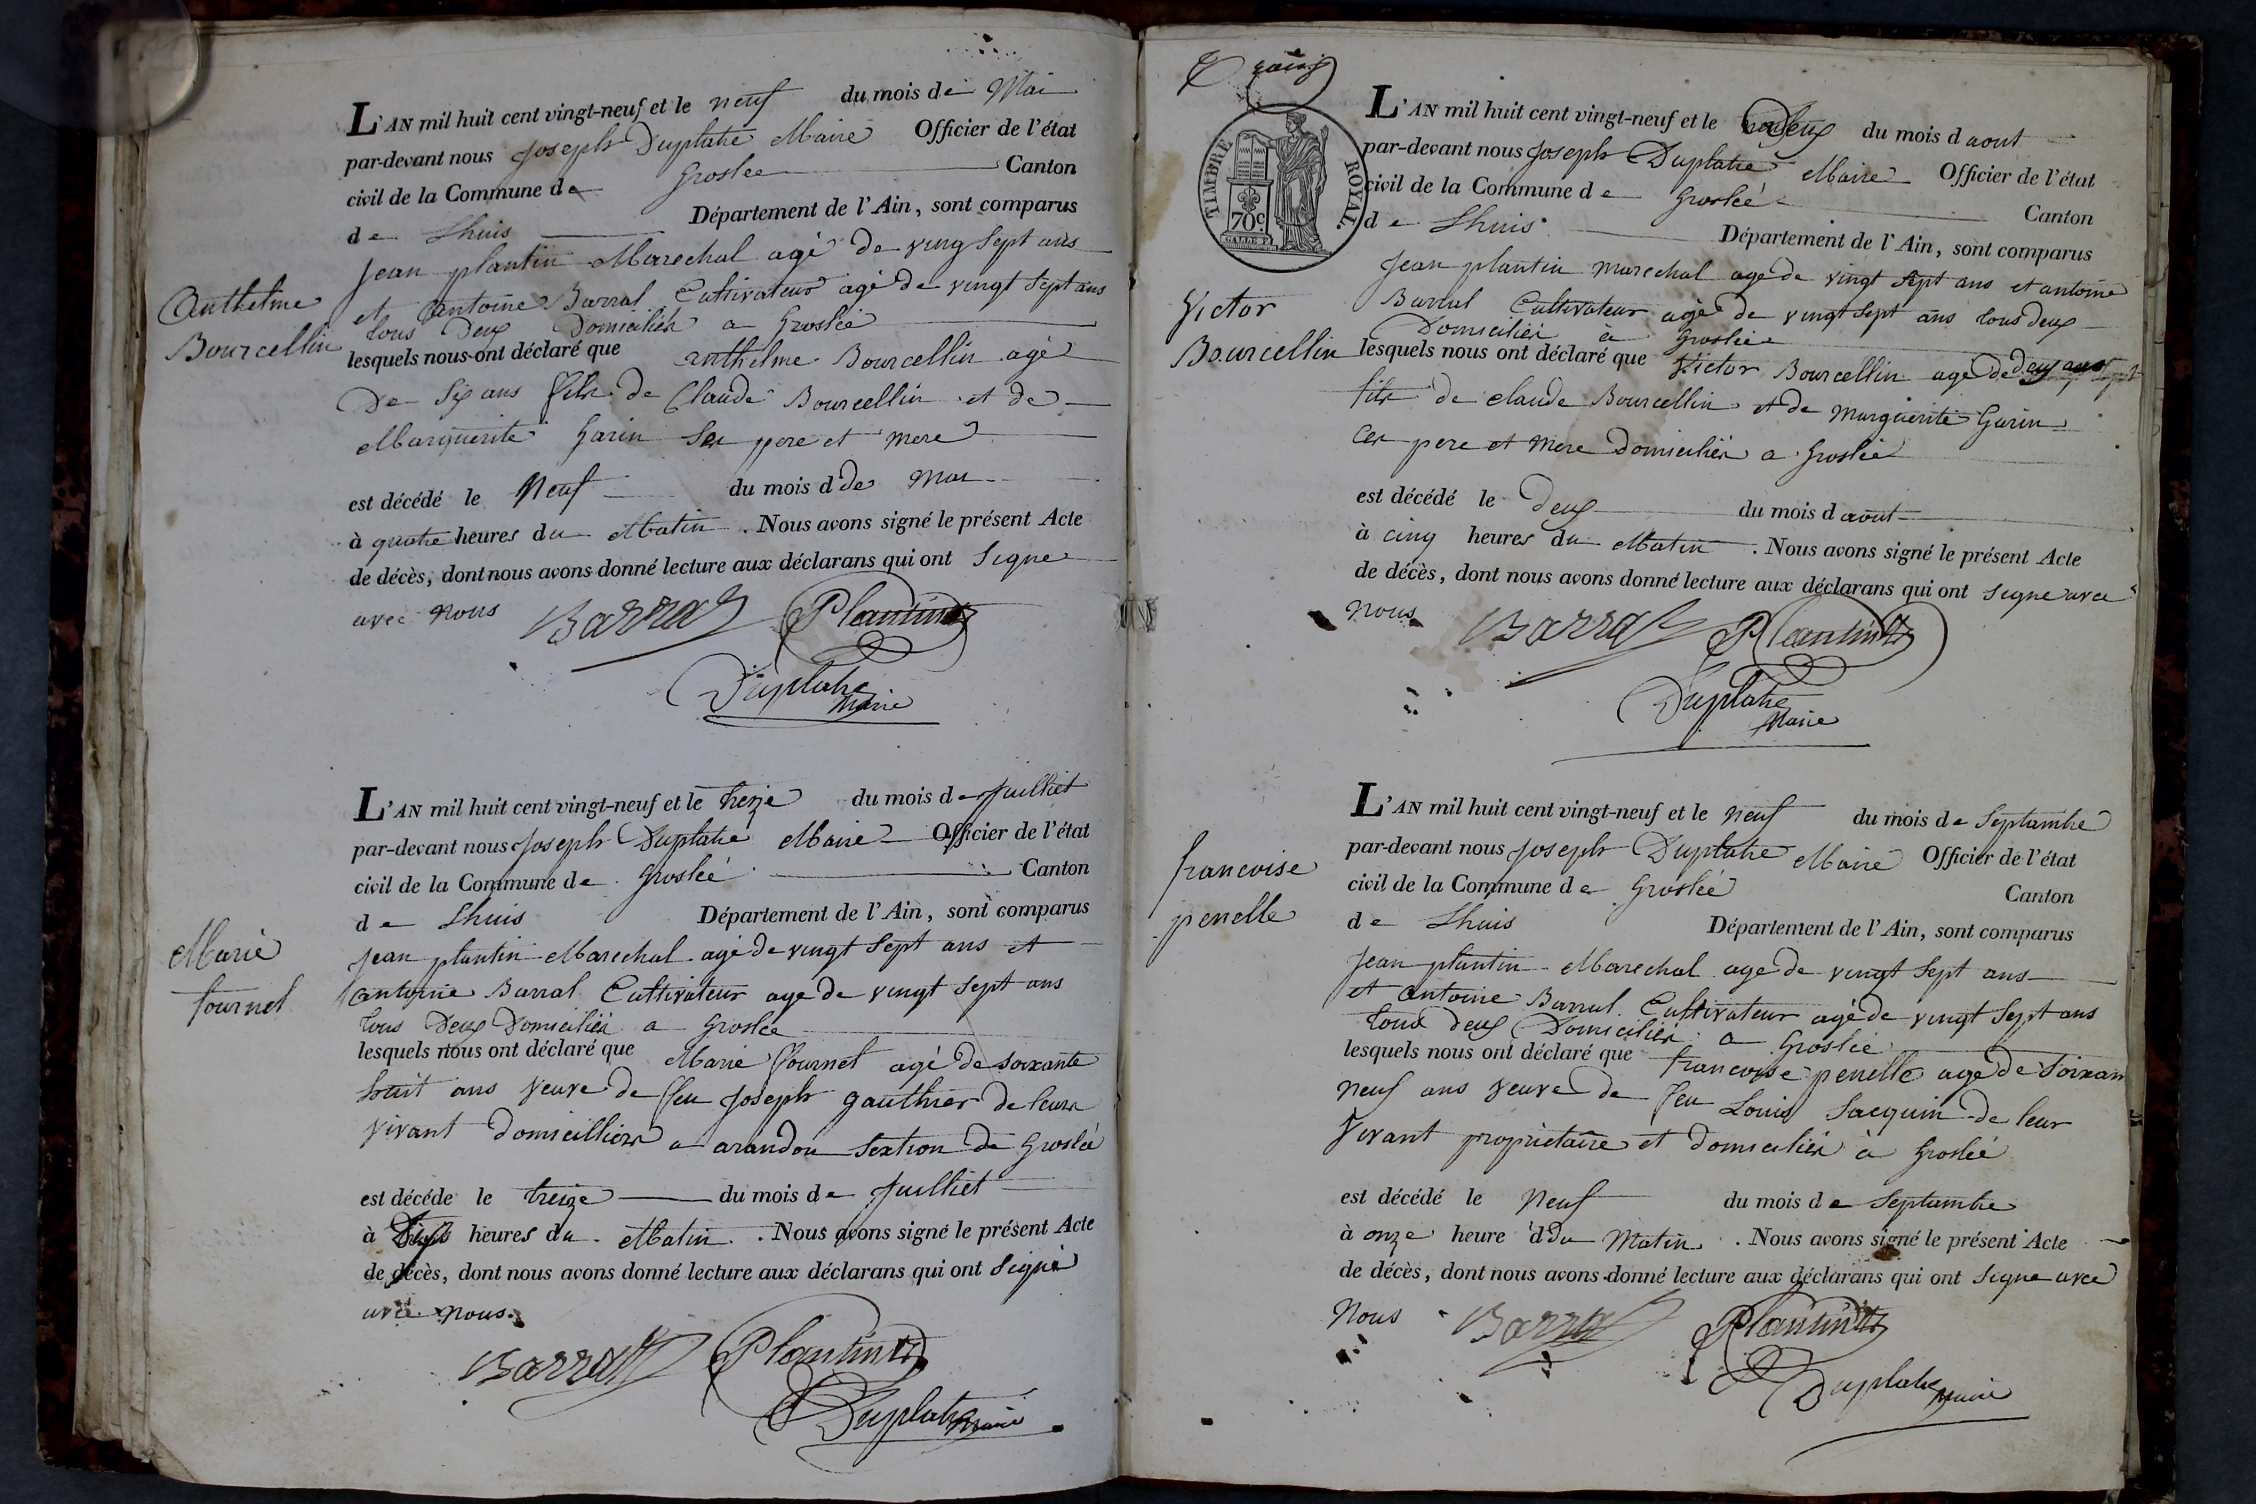 L'AN mil huit cent vingt-neuf et le neuf du mois de Mai
par-devant nous Joseph Duplatre Maire Officier de l'état
civil de la Commune de Groslee Canton
de Lhuis Département de l'Ain, sont comparus
Jean plantin Marechal agé de ving Sept ans
et Antoine Barral Cultivateur agé de vingt Sept ans
tous Deux Domiciliés a Groslée
Anthelme
Bourcellin
lesquels nous ont déclaré que anthelme Bourcellin agé
De Six ans fils de Claude Bourcellin et de
Marguerite Garin Ses pere et mere
est décédé le Neuf du mois d de Mai
à quatre heures du Matin. Nous avons signé le présent Acte
de décès, dont nous avons donné lecture aux déclarans qui ont Signe
avec nous Barral Plantin
Duplatre
Maire
L'AN mil huit cent vingt-neuf et le treize du mois de Juilliet
par-devant nous Joseph Duplatre Maire Officier de l'état
civil de la Commune de Groslée Canton
de Lhuis Département de l'Ain, sont comparus
Jean plantin Marechal agé de vingt Sept ans et
antoine Barral Cultivateur age de vingt Sept ans
tous Deux Domiciliés a Groslée
Marie
fournet
lesquels nous ont déclaré que Marie fournet agé de soixante
huit ans Veuve de feu Joseph gauthier de leurs
vivant domicilliers a arandon Section de Groslée
est décédé le treize du mois de Juilliet
à heures du Matin. Nous avons signé le présent Acte
de décès, dont nous avons donné lecture aux déclarans qui ont signé
avec nous.
Barral Plantin
Duplatre Maire
TIMBRE ROYAL.
70c.
L'AN mil huit cent vingt-neuf et le deux du mois d aout
par-devant nous Joseph Duplatre Maire Officier de l'état
civil de la Commune de Groslée Canton
de Lhuis Département de l'Ain, sont comparus
Jean plantin marechal agé de vingt Sept ans et antoine
Barral Cultivateur agé de vingt Sept ans tous deux
Domiciliés à Groslée
Victor
Bourcellin
lesquels nous ont déclaré que Victor Bourcellin age de deux ans
fils de claude Bourcellin et de marguerite Garin
ces pere et mere Domiciliés a Groslée
est décédé le Deux du mois d aout
à cinq heures du Matin. Nous avons signé le présent Acte
de décès, dont nous avons donné lecture aux déclarans qui ont signe avec
nous Barral Plantin
Duplatre
Maire
L'AN mil huit cent vingt-neuf et le neuf du mois de Septambre
par-devant nous Joseph Duplatre Maire Officier de l'état
civil de la Commune de Groslée Canton
de Lhuis Département de l'Ain, sont comparus
Jean plantin Marechal age de vingt Sept ans
et Antoine Barral Cultivateur agé de vingt Sept ans
tous deux Domiciliés a Groslée
francoise
penelle
lesquels nous ont déclaré que francoise penelle age de Soixan
neuf ans veuve de feu Louis Jacquin de leur
vivant proprietaire et domiciliés à Groslée
est décédé le Neuf du mois de Septambre
à onze heure d du Matin. Nous avons signé le présent Acte
de décès, dont nous avons donné lecture aux déclarans qui ont Signe avec
Nous Barral Plantin
Duplatre Maire